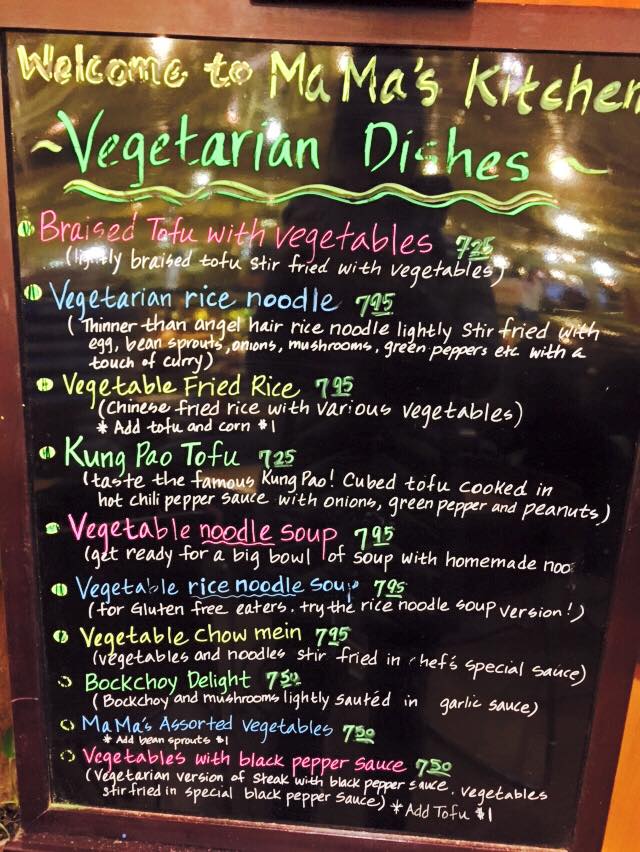 Welcome to MaMa's Kitchen
~Vegetarian Dishes~
Braised Tofu with vegetables 7.25
(lightly braised tofu stir fried with vegetables)
Vegetarian rice noodle 7.95
(Thinner than angel hair rice noodle lightly stir fried with
egg, bean sprouts, onions, mushrooms, green peppers etc with a
touch of curry)
Vegetable Fried Rice 7.95
(Chinese fried rice with various vegetables)
* Add tofu and corn $1
Kung Pao Tofu 7.25
(taste the famous Kung Pao! Cubed tofu cooked in
hot chili pepper sauce with onions, green pepper and peanuts)
Vegetable noodle soup 7.95
(get ready for a big bowl of soup with homemade noo
Vegetable rice noodle soup 7.95
(for Gluten free eaters. try the rice noodle soup version!)
Vegetable chow mein 7.95
(vegetables and noodles stir fried in chef's special sauce)
Bockchoy Delight 7.50
(Bockchoy and mushrooms lightly sautéd in garlic sauce)
MaMa's Assorted vegetables 7.50
* Add bean sprouts $1
Vegetables with black pepper sauce 7.50
(Vegetarian version of steak with black pepper sauce. vegetables
stir fried in special black pepper sauce) * Add Tofu $1